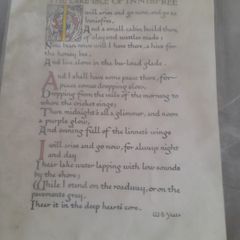 THE LAKE ISLE OF INNISFREE
I will arise and go now, and go to
Innisfree,
And a small cabin build there,
of clay and wattles made;
Nine bean rows will I have there, a hive for
the honey bee,
And live alone in the bee-loud glade.
And I shall have some peace there, for
peace comes dropping slow,
Dropping from the veils of the morning to
where the cricket sings;
There midnight's all a glimmer, and noon
a purple glow,
And evening full of the linnet's wings
I will arise and go now, for always night
and day
I hear lake water lapping with low sounds
by the shore;
While I stand on the roadway, or on the
pavements grey,
I hear it in the deep heart's core.
W·B·Yeats